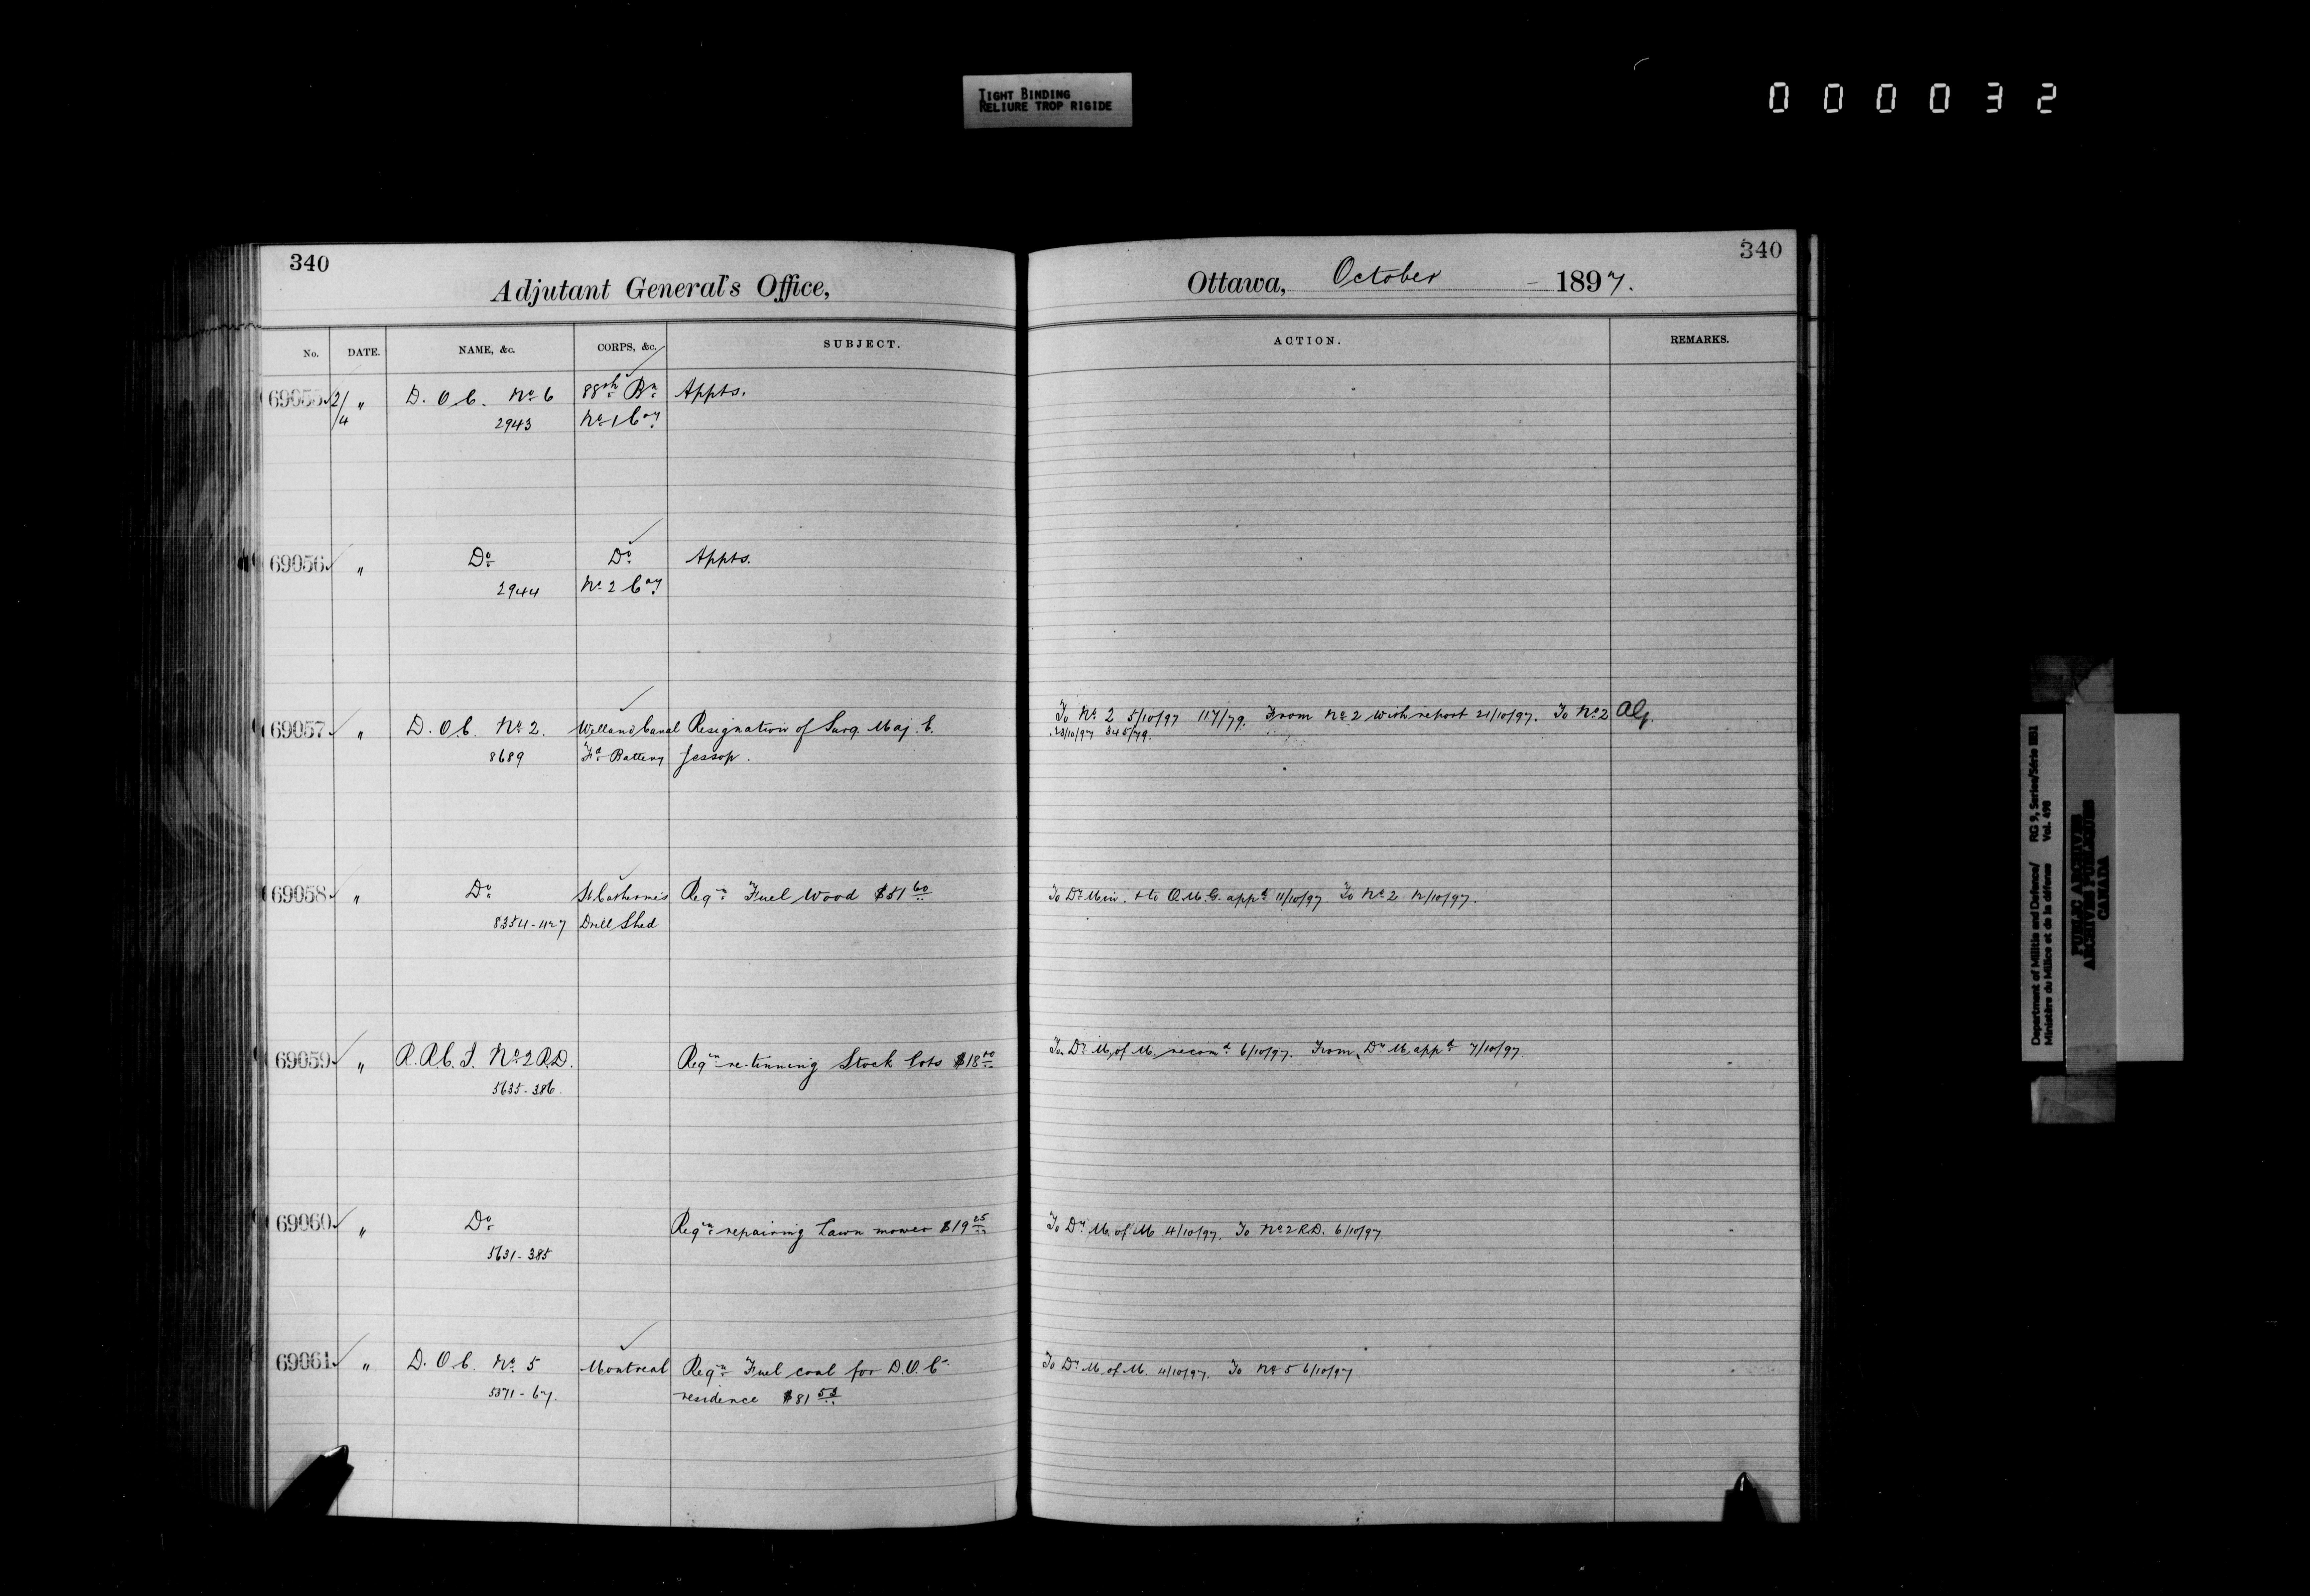 TIGHT BINDING
RELIURE TROP RIGIDE
000032
340
Adjutant General's Office,
No. DATE. NAME, &c. CORPS, &c. SUBJECT.
69055 2/4 " D.O.C. No 6 88th Bn Appts.
2943 No 1 Coy
69056 " Do Do Appts.
2944 No 2 Coy
69057 " D.O.C. No 2. Welland Canal Resignation of Surg. Maj. E.
8689 Fd Battery Jessop.
69058 " Do St Catherines Reqn Fuel Wood $51 60
8354-427 Drill Shed
69059 " R.R.C.I. No 2 R.D. Reqn re-tinning Stock Pots $18 00
5635-386.
69060 " Do Reqn repairing Lawn mower $19 25
5631-385
69061 " D.O.C. No 5 Montreal Reqn Fuel coal for D.O.C's
5371-67. residence $81 53
340
Ottawa, October 1897.
ACTION. REMARKS.
To No 2 5/10/97 117/79. From No 2 with report 21/10/97. To No 2
23/10/97 345/79.
To Dr Min. & to Q.M.G. appd 11/10/97 To No 2 12/10/97.
To Dr M. of M. recomd 6/10/97. From Dr M. appd 7/10/97.
To Dr M. of M 4/10/97. To No 2 R.D. 6/10/97.
To Dr M. of M. 4/10/97. To No 5 6/10/97
Department of Militia and Defence/ RG 9, Series/Série IIB1
Ministère du Milice et de la défense Vol. 498
PUBLIC ARCHIVES
ARCHIVES PUBLIQUES
CANADA